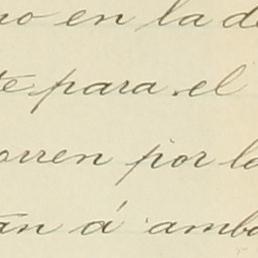 no en la de
te para el
orren por la
an á amb